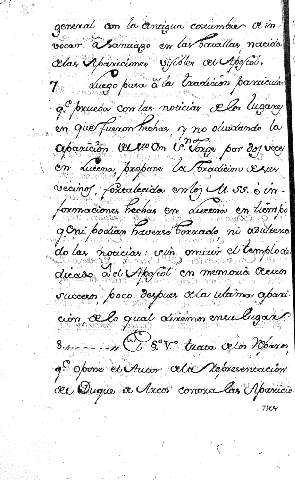 general con la antigua costumbre de in
vocar a Santiago en las batallas nacida
de las Apariciones visibles del Apostol.
7. Luego pasa â la tradicion particular
qe prueba con las noticias de los lugares
en que fueron hechas, y no olvidando la
aparicion de por dos veces
en Luceno, propone la tradicion de sus
vecinos, fortalecida en los M. SS. è in-
formaciones hechas en Luceno en tiempo
qe ni podian haverse borrado, ni adultera
do las noticias, sin omitir el templo de
dicado â el Apostol en memoria de un
succeso poco despues de la ultima apari
cion, de lo qual diremos en su lugar.
8. El §o Vo trata de los
qe opone el Autor de la Representacion
del Duque de Arcos contra las Aparicio
nes